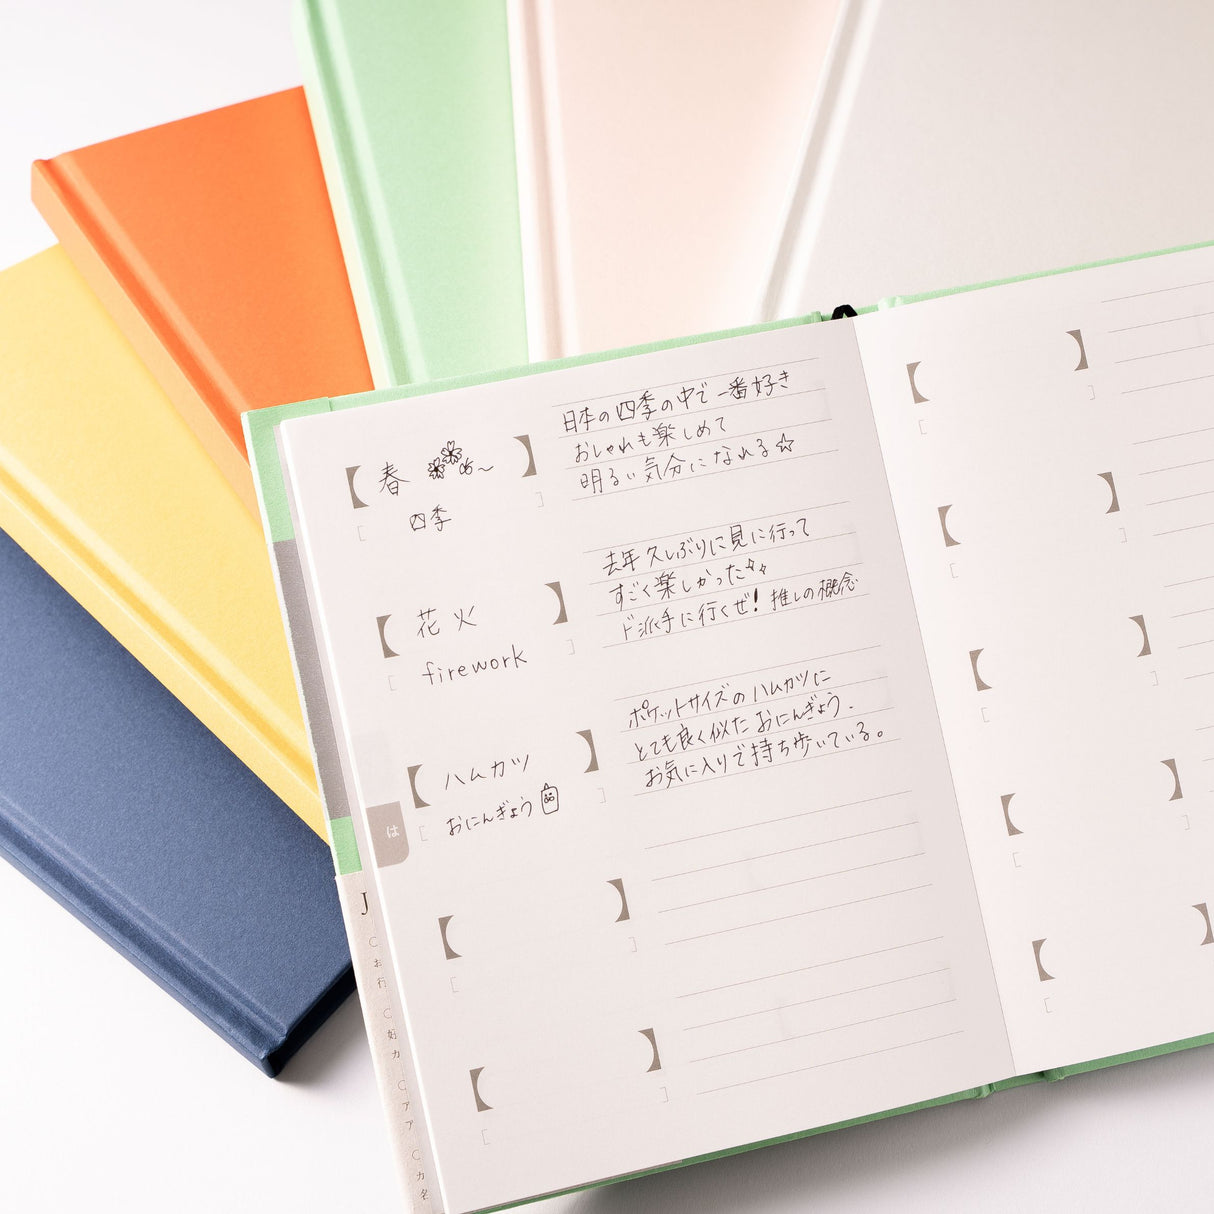 春 め〜
四季
日本の四季の中で一番好き
おしゃれも楽しめて
明るい気分になれる☆
花火
firework
去年久しぶりに見に行って
すごく楽しかった
ド派手に行くぜ！推しの概念
ハムカツ
おにんぎょう
ポケットサイズのハムカツに
とても良く似たおにんぎょう.
お気に入りで持ち歩いている。
は
J
お行
好カ
アア
カ名